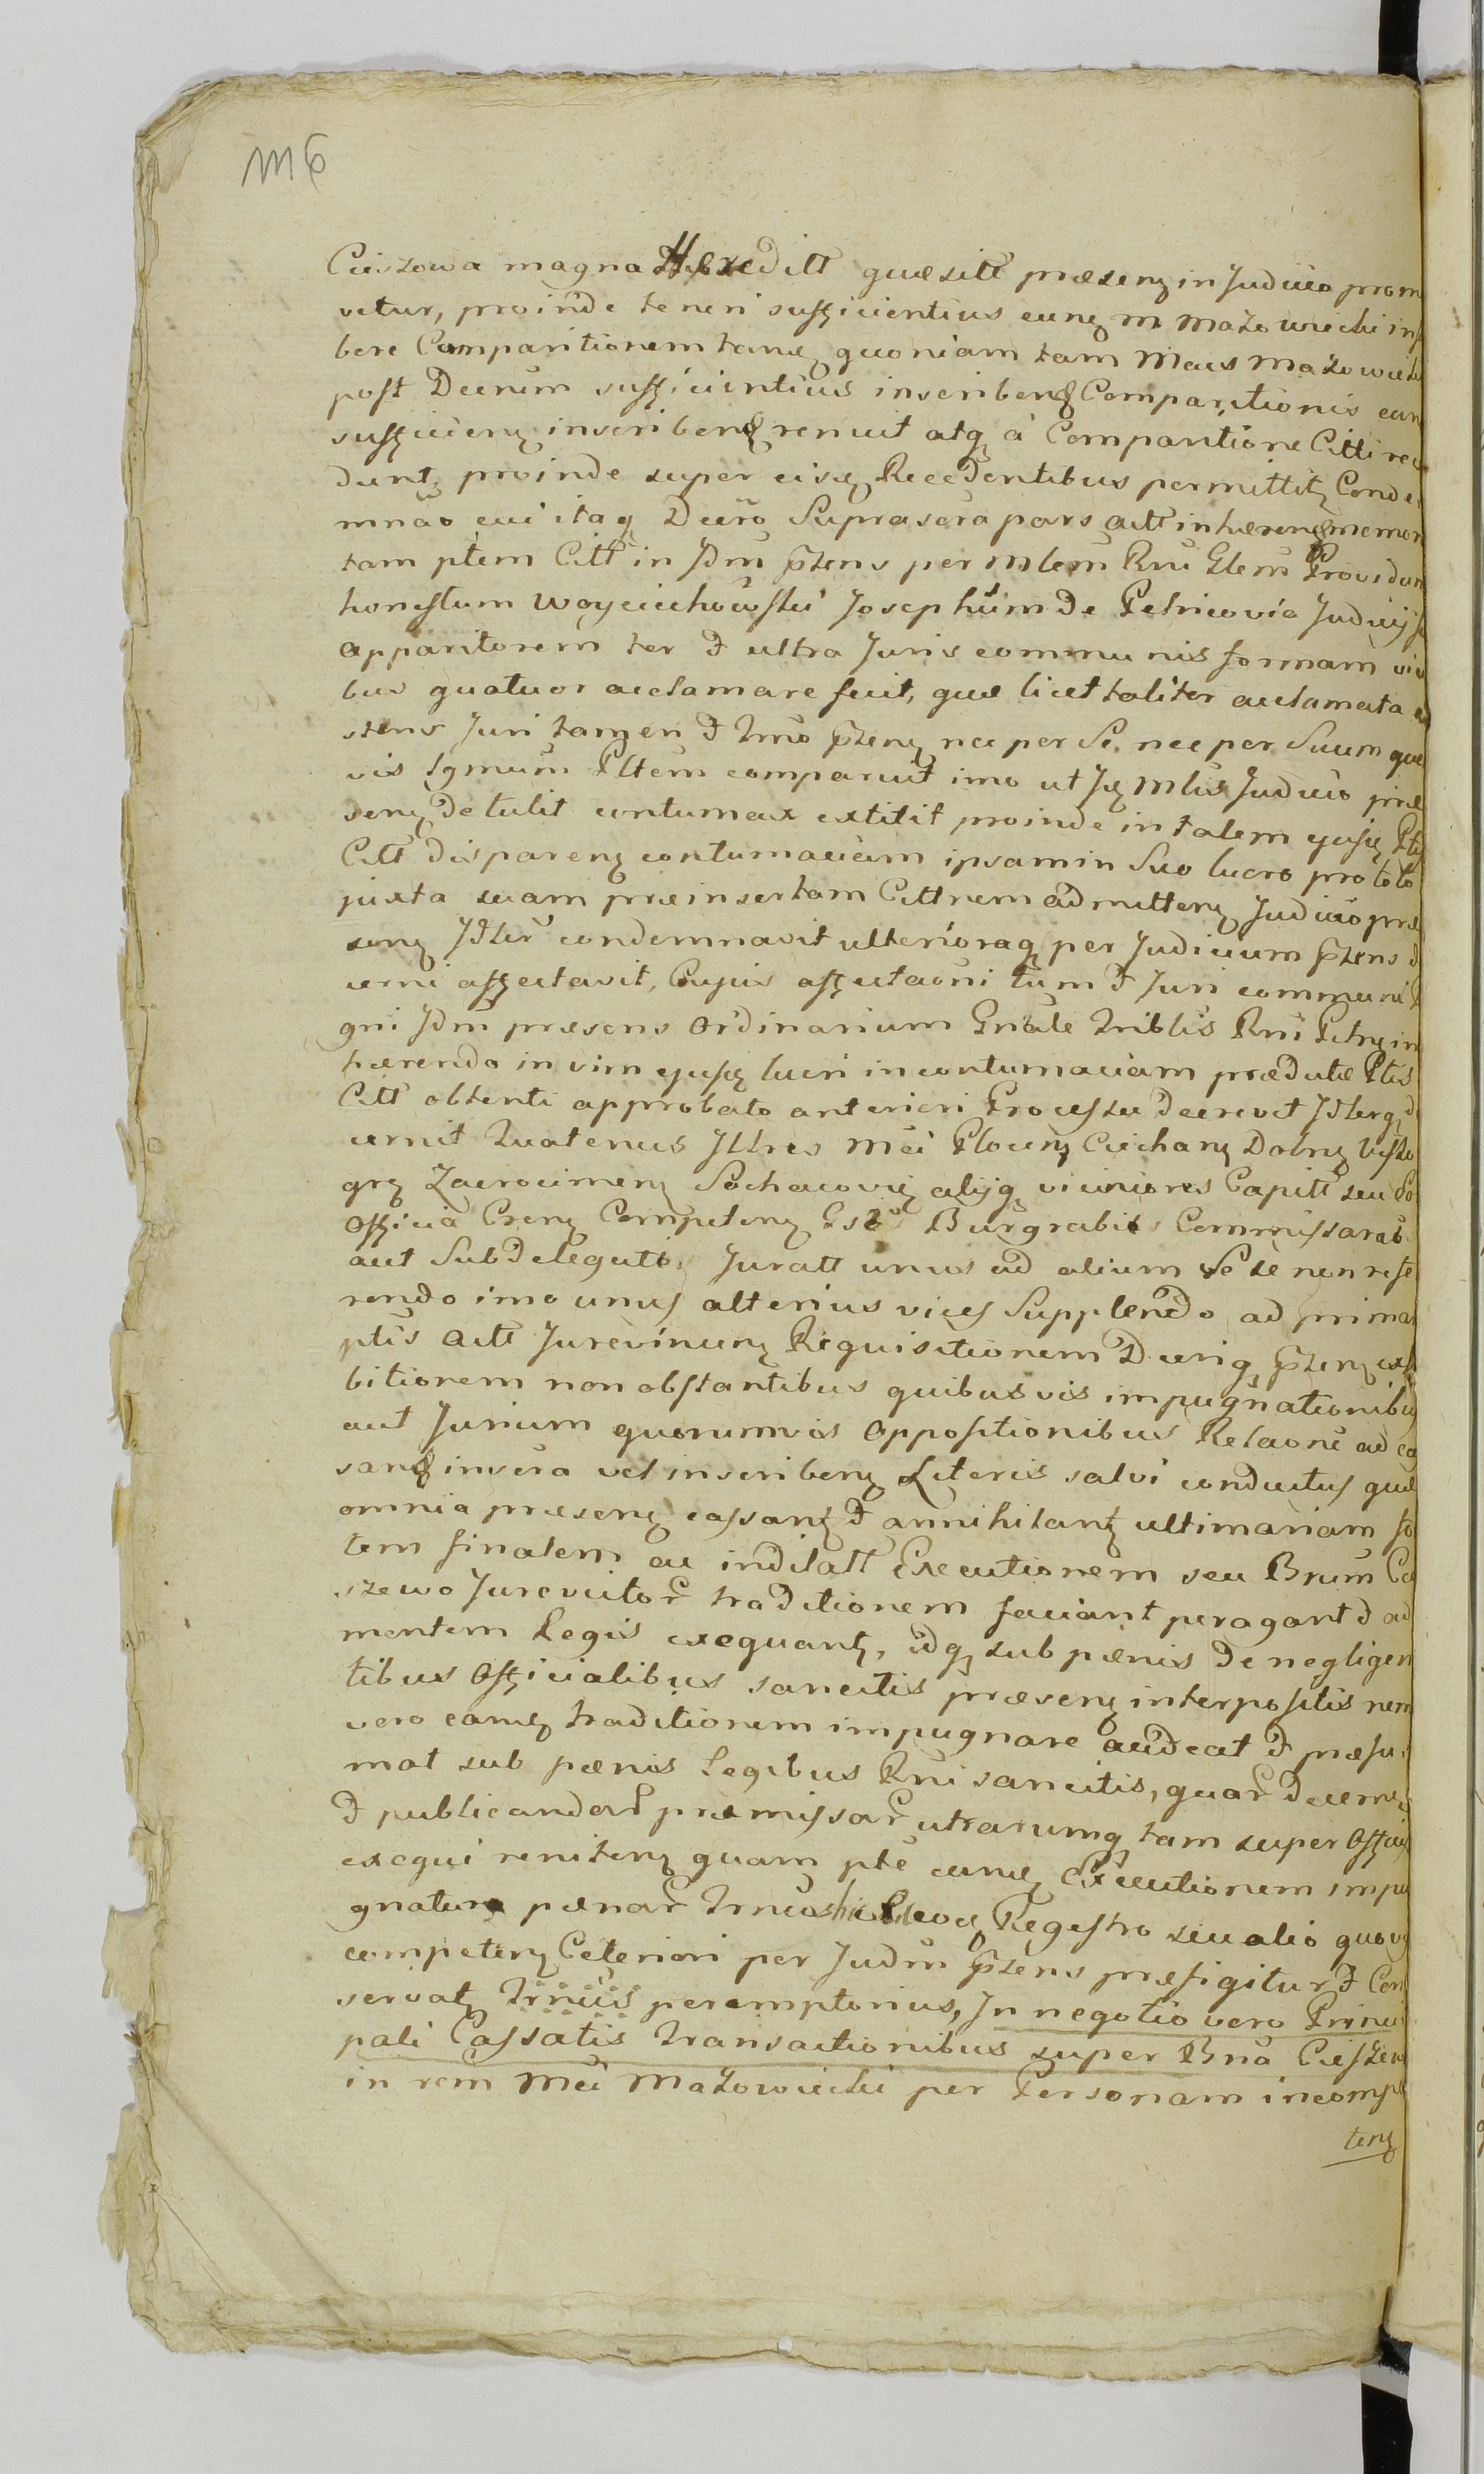 M6
Cieszowa magna Hereditt quæsitt præsenȝ in Judicio prom
vetur, proinde teneri sufficientius eunȝ M Mazowiecki ins
bere Comparitionem tanȝ quoniam tam Mcus Mazowiecki
post Decrum sufficientius inscribenȝ Comparitionis ean
sufficienȝ inscribenȝ renuit atqȝ à Comparitione Citti rece
duntȝ proinde super eisȝ Recedentibus permittitȝ Conde
mnao cui itaqȝ Decro Suprascra pars actt inhærenȝ memor
tam ptem Citt in Jdm przens per Mlem Rni Glem Providum
honestum Woyciechowski Josephum de Petricovia Judicij
apparitorem ter & ultra Juris communis formam vic
bus quatuor acclamare fecit, quæ licet taliter acclamata
stens Juri tamen & Trno przenȝ nec per Se, nec per Suum que
vis Lgmum Pltem comparuit imo ut Jȝ Mlis Judicio præ
senȝ detulit contumax extitit proinde in talem ejusȝ Ptis
Citt disparenȝ contumaciam ipsam in Suo lucro pro toto
juxta suam præinsertam Cittnem admittenȝ Judicio præ
senȝ Jdlir condemnavit ulterioraqȝ per Judicium przens d
cerni affectavit, Cujus affectaoni tum & Juri communi
gni Jdm præsens Ordinarium Gnale Triblis Rni Petrȝ in
hærendo in vim ejusȝ lucri in contumaciam prædictæ Ptis
Citt obtenti approbato anteriori Processu decrevit Jdlerqȝ d
cernit Quatenus Jllres Mci Plocenȝ Ciechanȝ Dobrȝ Visso
grȝ Zacrocimenȝ Sochacovȝ alijqȝ viciniores Capitt seu
Officia Crenȝ Competenȝ Burgrabii Commissarii
aut Subdelegati Juratt unus ad alium Se se non refe
rendo imo unus alterius vices Supplendo ad primam
ptis actt Jurevincenȝ Requisitionem Decriqȝ przenȝ exhi
bitionem non obstantibus quibusvis impugnationibus
aut Jurium quorumvis Oppositionibus Relaone ad ca
sanȝ inscra vel inscribenȝ Literis salvi conductus quæ
omnia præsenȝ cassantȝ & annihilantȝ ultimariam to
tem finalem ac indilatt Executionem seu Bnrum Cie
szewo Jurevictor traditionem faciant peragant & ad
mentem Legis exequantȝ, idqȝ sub pænis de negligen
tibus Officialibus sancitis præsenȝ interpositis nem
vero eamȝ traditionem impugnare audeat & præsu
mat sub pænis Legibus Rni sancitis, quar decernenȝ
& publicandar præmissar utrarumqȝ tam super Officijs
exequi renitenȝ quam pte eamȝ Executionem impu
gnatura pænar Trnus Regestro seu alio quovis
competenȝ Celeriori per Judm przens præfigitur & Con
servatȝ Trnus peremptorius, In negotio vero Princi
pali Cassatis Transactionibus super Bna Cieszew
in rem Mci Mazowiecki per Personam incompe
tenȝ